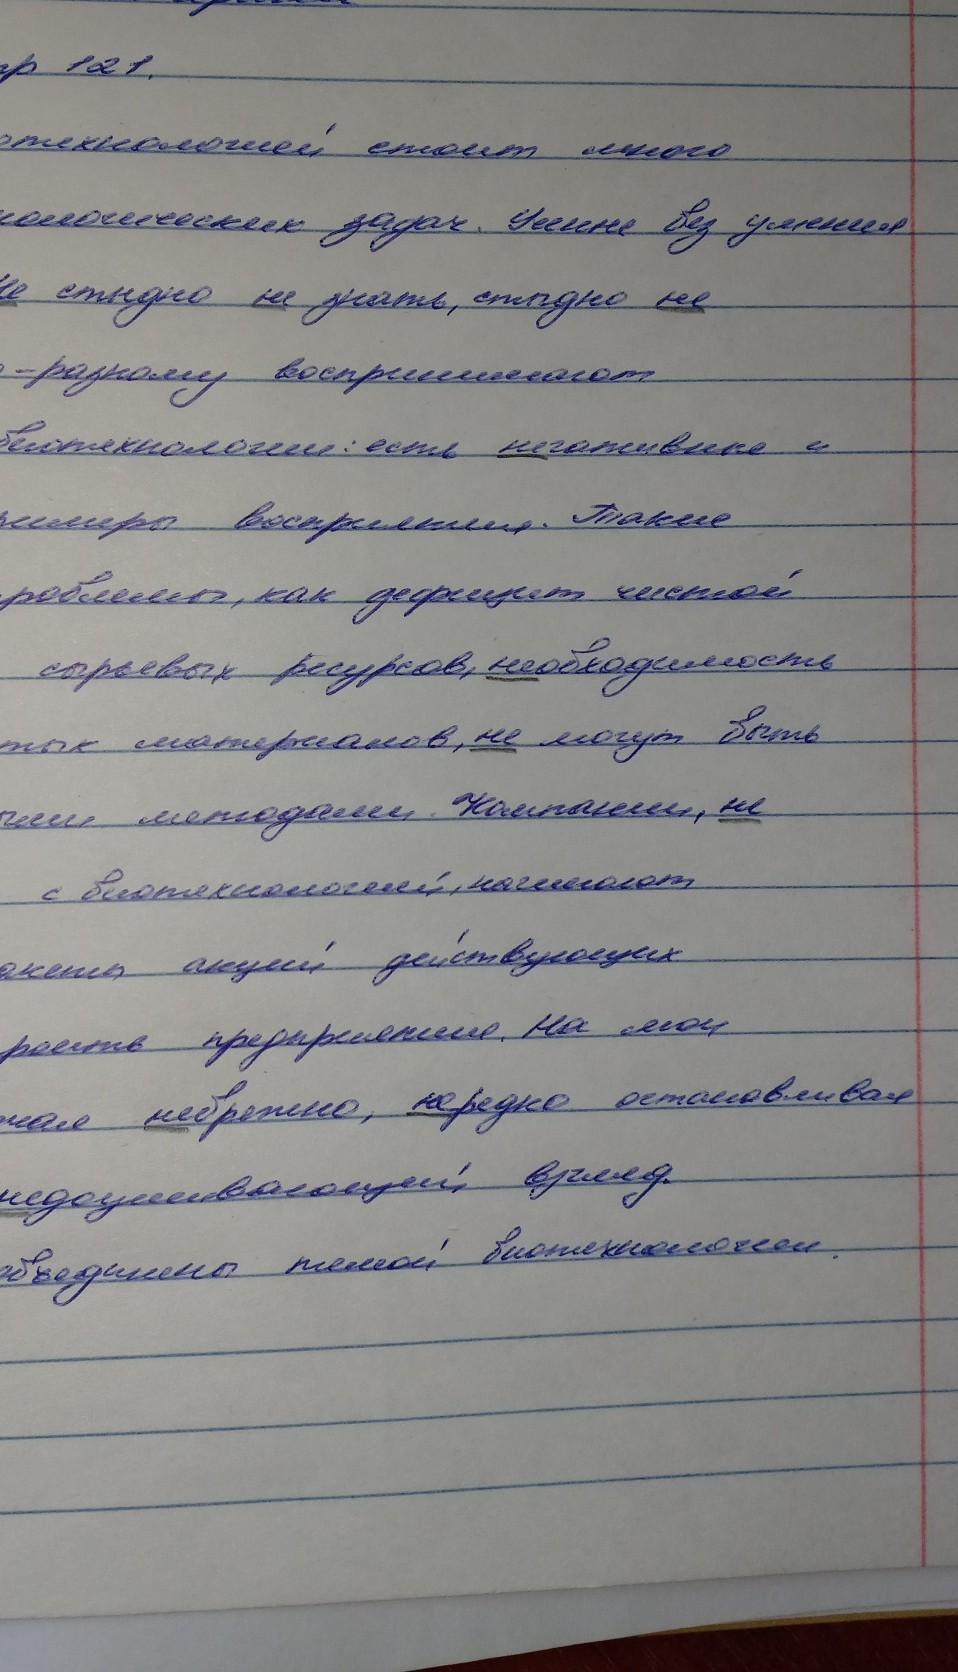 тр 121.
отехнологией стоит много
нологических задач. Учение без умения
Не стыдно не знать, стыдно не
о-разному воспринимают
биотехнологии: есть негативные и
римеры восприятия. Такие
роблемы, как дефицит чистой
сырьевых ресурсов, необходимость
тых материалов, не могут быть
ыми методами. Компании, не
с биотехнологией, начинают
акеты акций действующих
роить предприятие. На мои
чал небрежно, нередко останавливая
недоумевающий взгляд.
объединены темой биотехнологии.